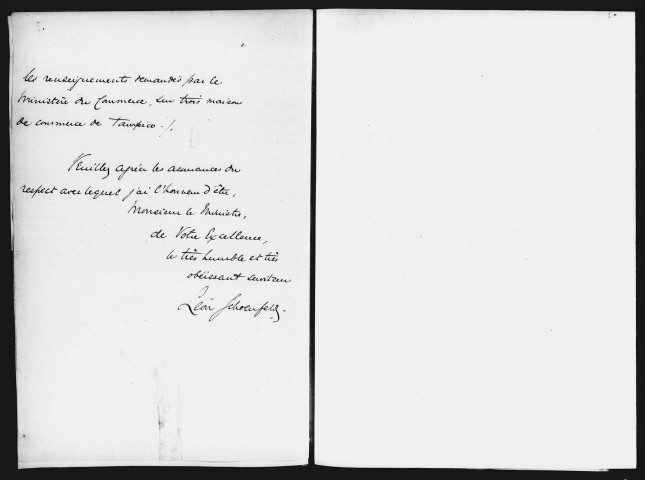 les renseignements demandés par le
Ministère du Commerce, sur trois maison
de commerce de Tampico ./.
Veuillez agréer les assurances du
respect avec lequel j'ai l'honneur d'être,
Monsieur le Ministre,
de Votre Excellence,
le très humble et très
obéissant serviteur
Léon Schoenfeld